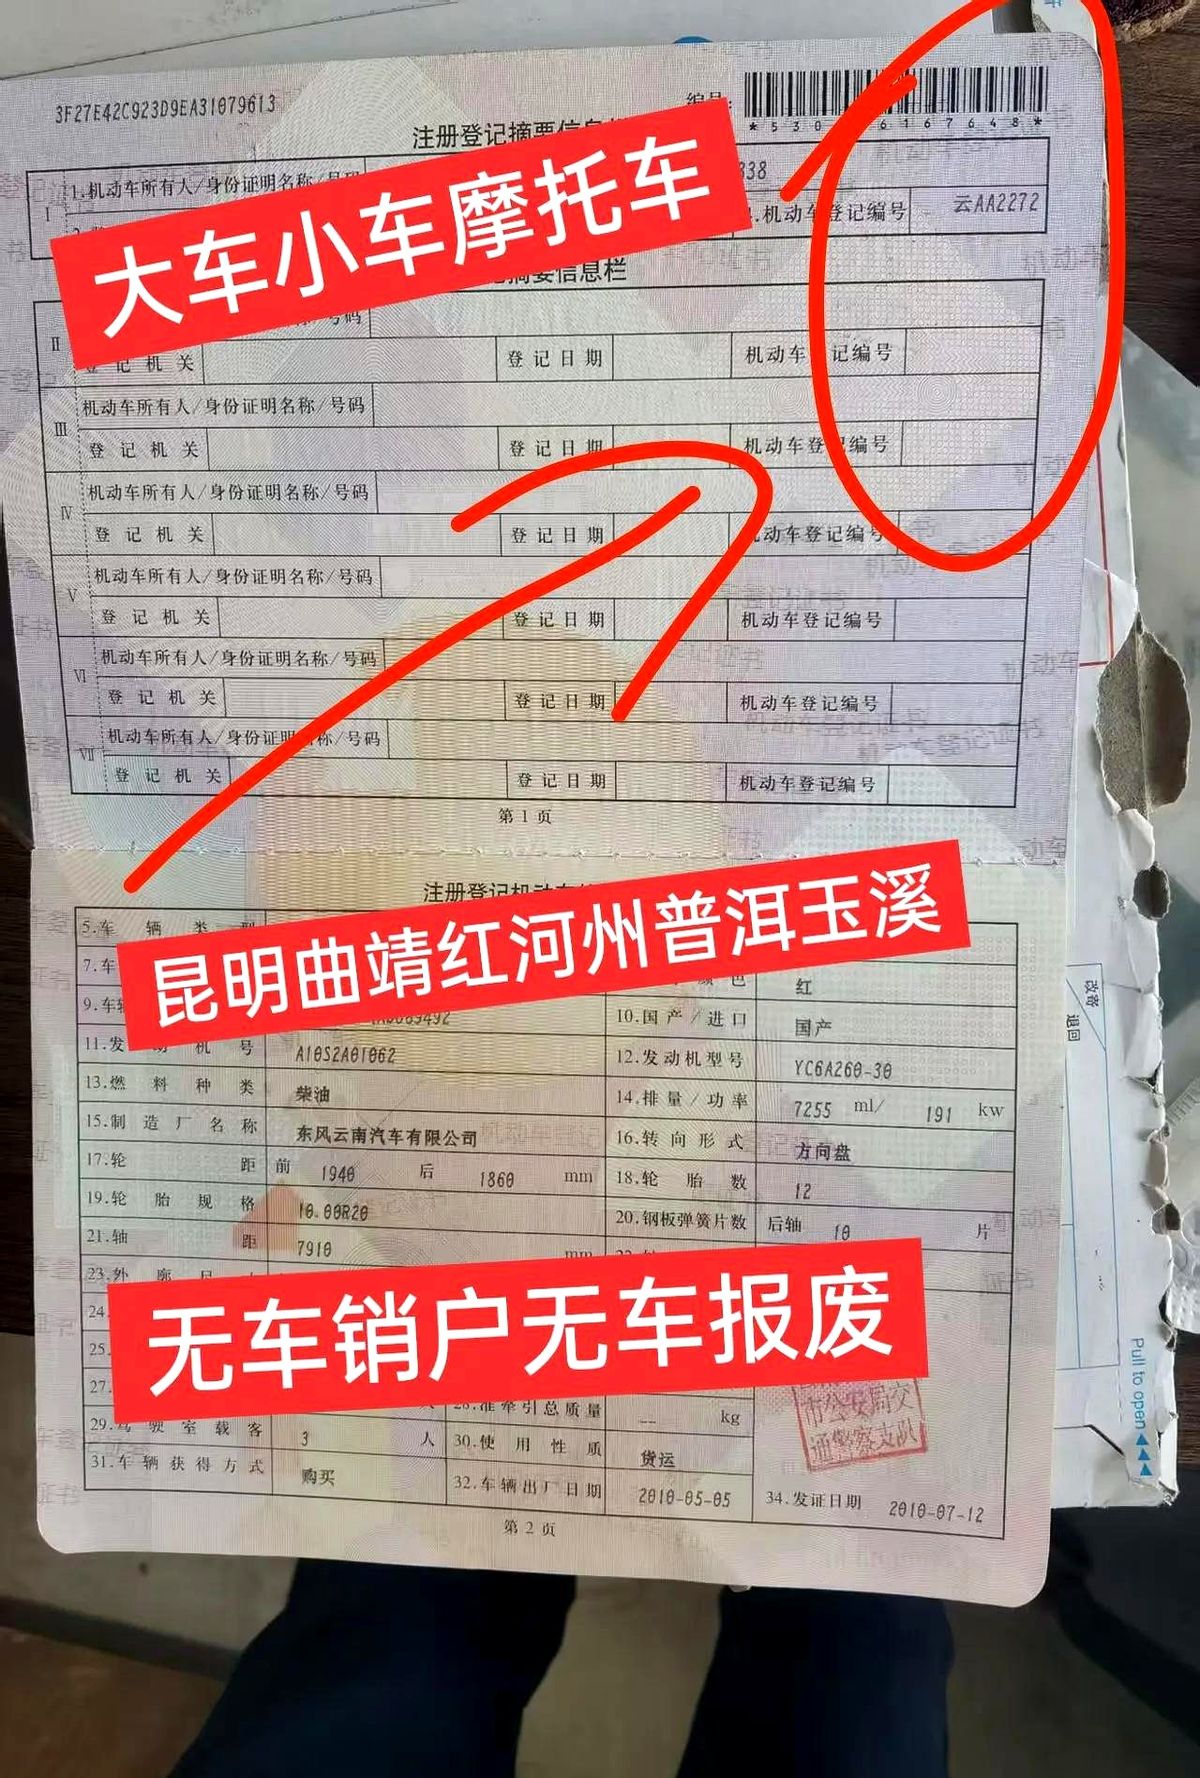 3F27E42C923D9EA31079613
编号:
注册登记摘要信息
1.机动车所有人/身份证明名称/号码
I
338
机动车登记编号 云AA2272
大车小车摩托车
摘要信息栏
II 号码
登记机关 登记日期 机动车登记编号
III 机动车所有人/身份证明名称/号码
登记机关 登记日期 机动车登记编号
IV 机动车所有人/身份证明名称/号码
登记机关 登记日期 机动车登记编号
V 机动车所有人/身份证明名称/号码
登记机关 登记日期 机动车登记编号
VI 机动车所有人/身份证明名称/号码
登记机关 登记日期 机动车登记编号
VII 机动车所有人/身份证明名称/号码
登记机关 登记日期 机动车登记编号
第1页
注册登记机动车
5.车辆类型
昆明曲靖红河州普洱玉溪
7.车 颜色 红
9.车 10.国产/进口 国产
11.发动机号 A10S2A01062 12.发动机型号 YC6A260-30
13.燃料种类 柴油 14.排量/功率 7255 ml/ 191 kw
15.制造厂名称 东风云南汽车有限公司 16.转向形式 方向盘
17.轮距 前 1940 后 1860 mm 18.轮胎数 12
19.轮胎规格 10.00R20 20.钢板弹簧片数 后轴 10 片
21.轴距 7910 mm
23.外廓
24.
25.
27.
无车销户无车报废
28.准牵引总质量 -- kg
29.驾驶室载客 3 人 30.使用性质 货运
31.车辆获得方式 购买 32.车辆出厂日期 2010-05-05 34.发证日期 2010-07-12
市公安局交
通警察支队
第2页
改寄
退回
Pull to open